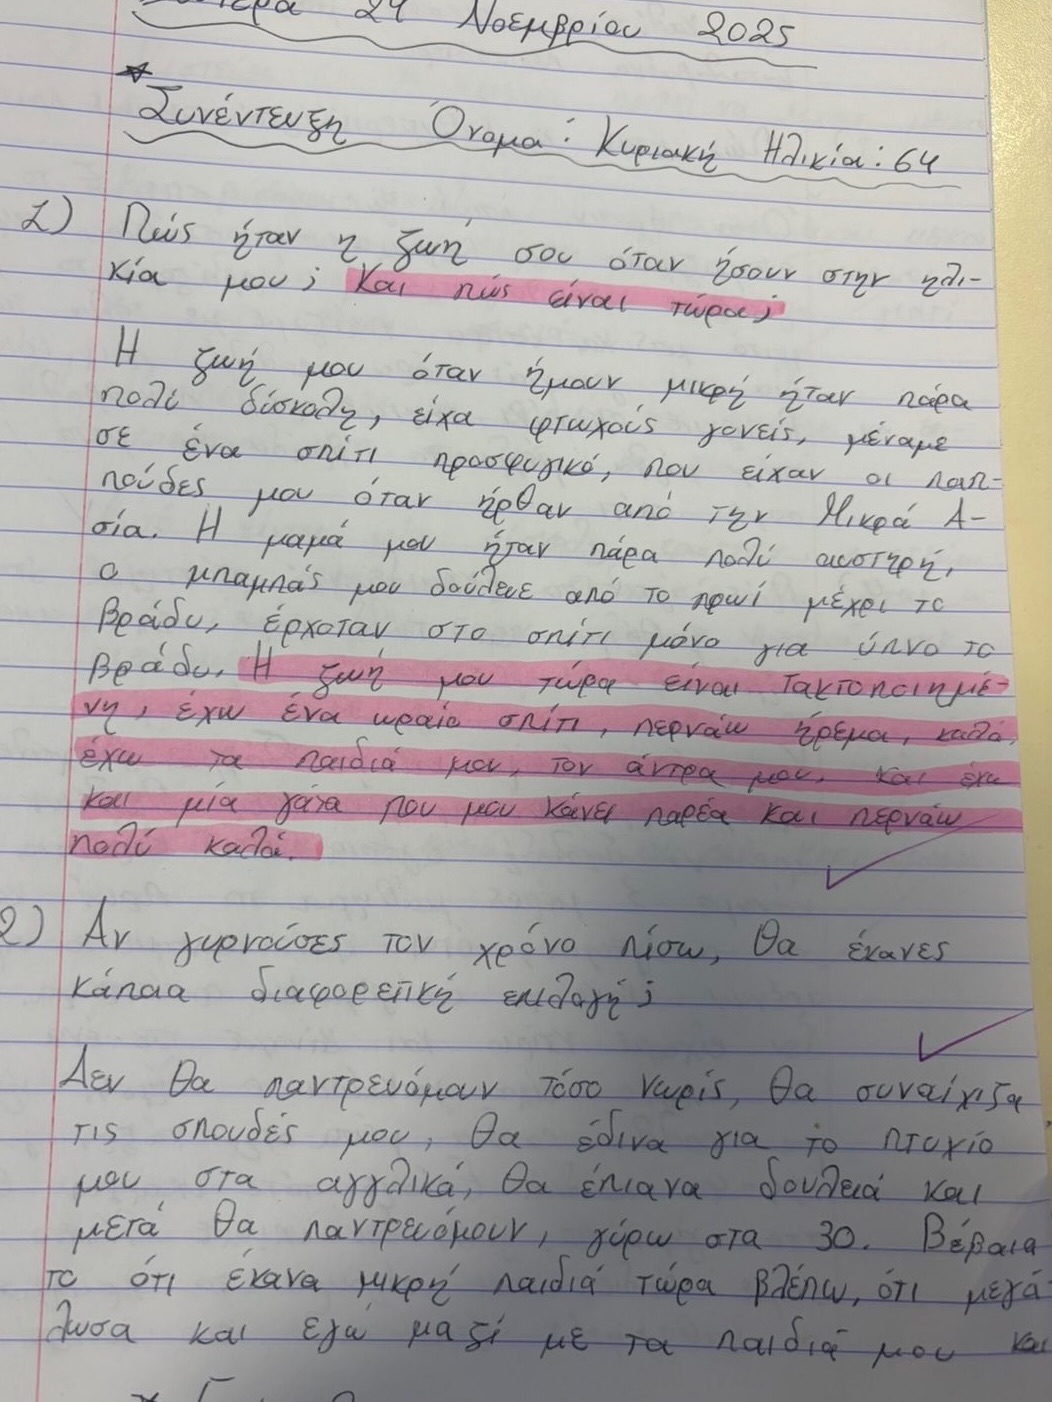 24 Νοεμβρίου 2025
Συνέντευξη Όνομα: Κυριακή Ηλικία: 64
1) Πώς ήταν η ζωή σου όταν ήσουν στην ηλι-
κία μου; Και πώς είναι τώρα;
Η ζωή μου όταν ήμουν μικρή ήταν πάρα
πολύ δύσκολη, είχα φτωχούς γονείς, μέναμε
σε ένα σπίτι προσφυγικό, που είχαν οι παπ-
πούδες μου όταν ήρθαν από την Μικρά Α-
σία. Η μαμά μου ήταν πάρα πολύ αυστηρή,
ο μπαμπάς μου δούλευε από το πρωί μέχρι το
βράδυ, έρχοταν στο σπίτι μόνο για ύπνο το
βράδυ. Η ζωή μου τώρα είναι τακτοποιημέ-
νη, έχω ένα ωραίο σπίτι, περνάω ήρεμα, καλά,
έχω τα παιδιά μου, τον άντρα μου, και έχω
και μία γάτα που μου κάνει παρέα και περνάω
πολύ καλά.
2) Αν γυρνούσες τον χρόνο πίσω, θα έκανες
κάποια διαφορετική επιλογή;
Δεν θα παντρευόμουν τόσο νωρίς, θα συναίχιζα
τις σπουδές μου, θα έδινα για το πτυχίο
μου στα αγγλικά, θα έπιανα δουλειά και
μετά θα παντρευόμουν, γύρω στα 30. Βέβαια
το ότι έκανα μικρή παιδιά τώρα βλέπω, ότι μεγά-
λωσα και εγώ μαζί με τα παιδιά μου και